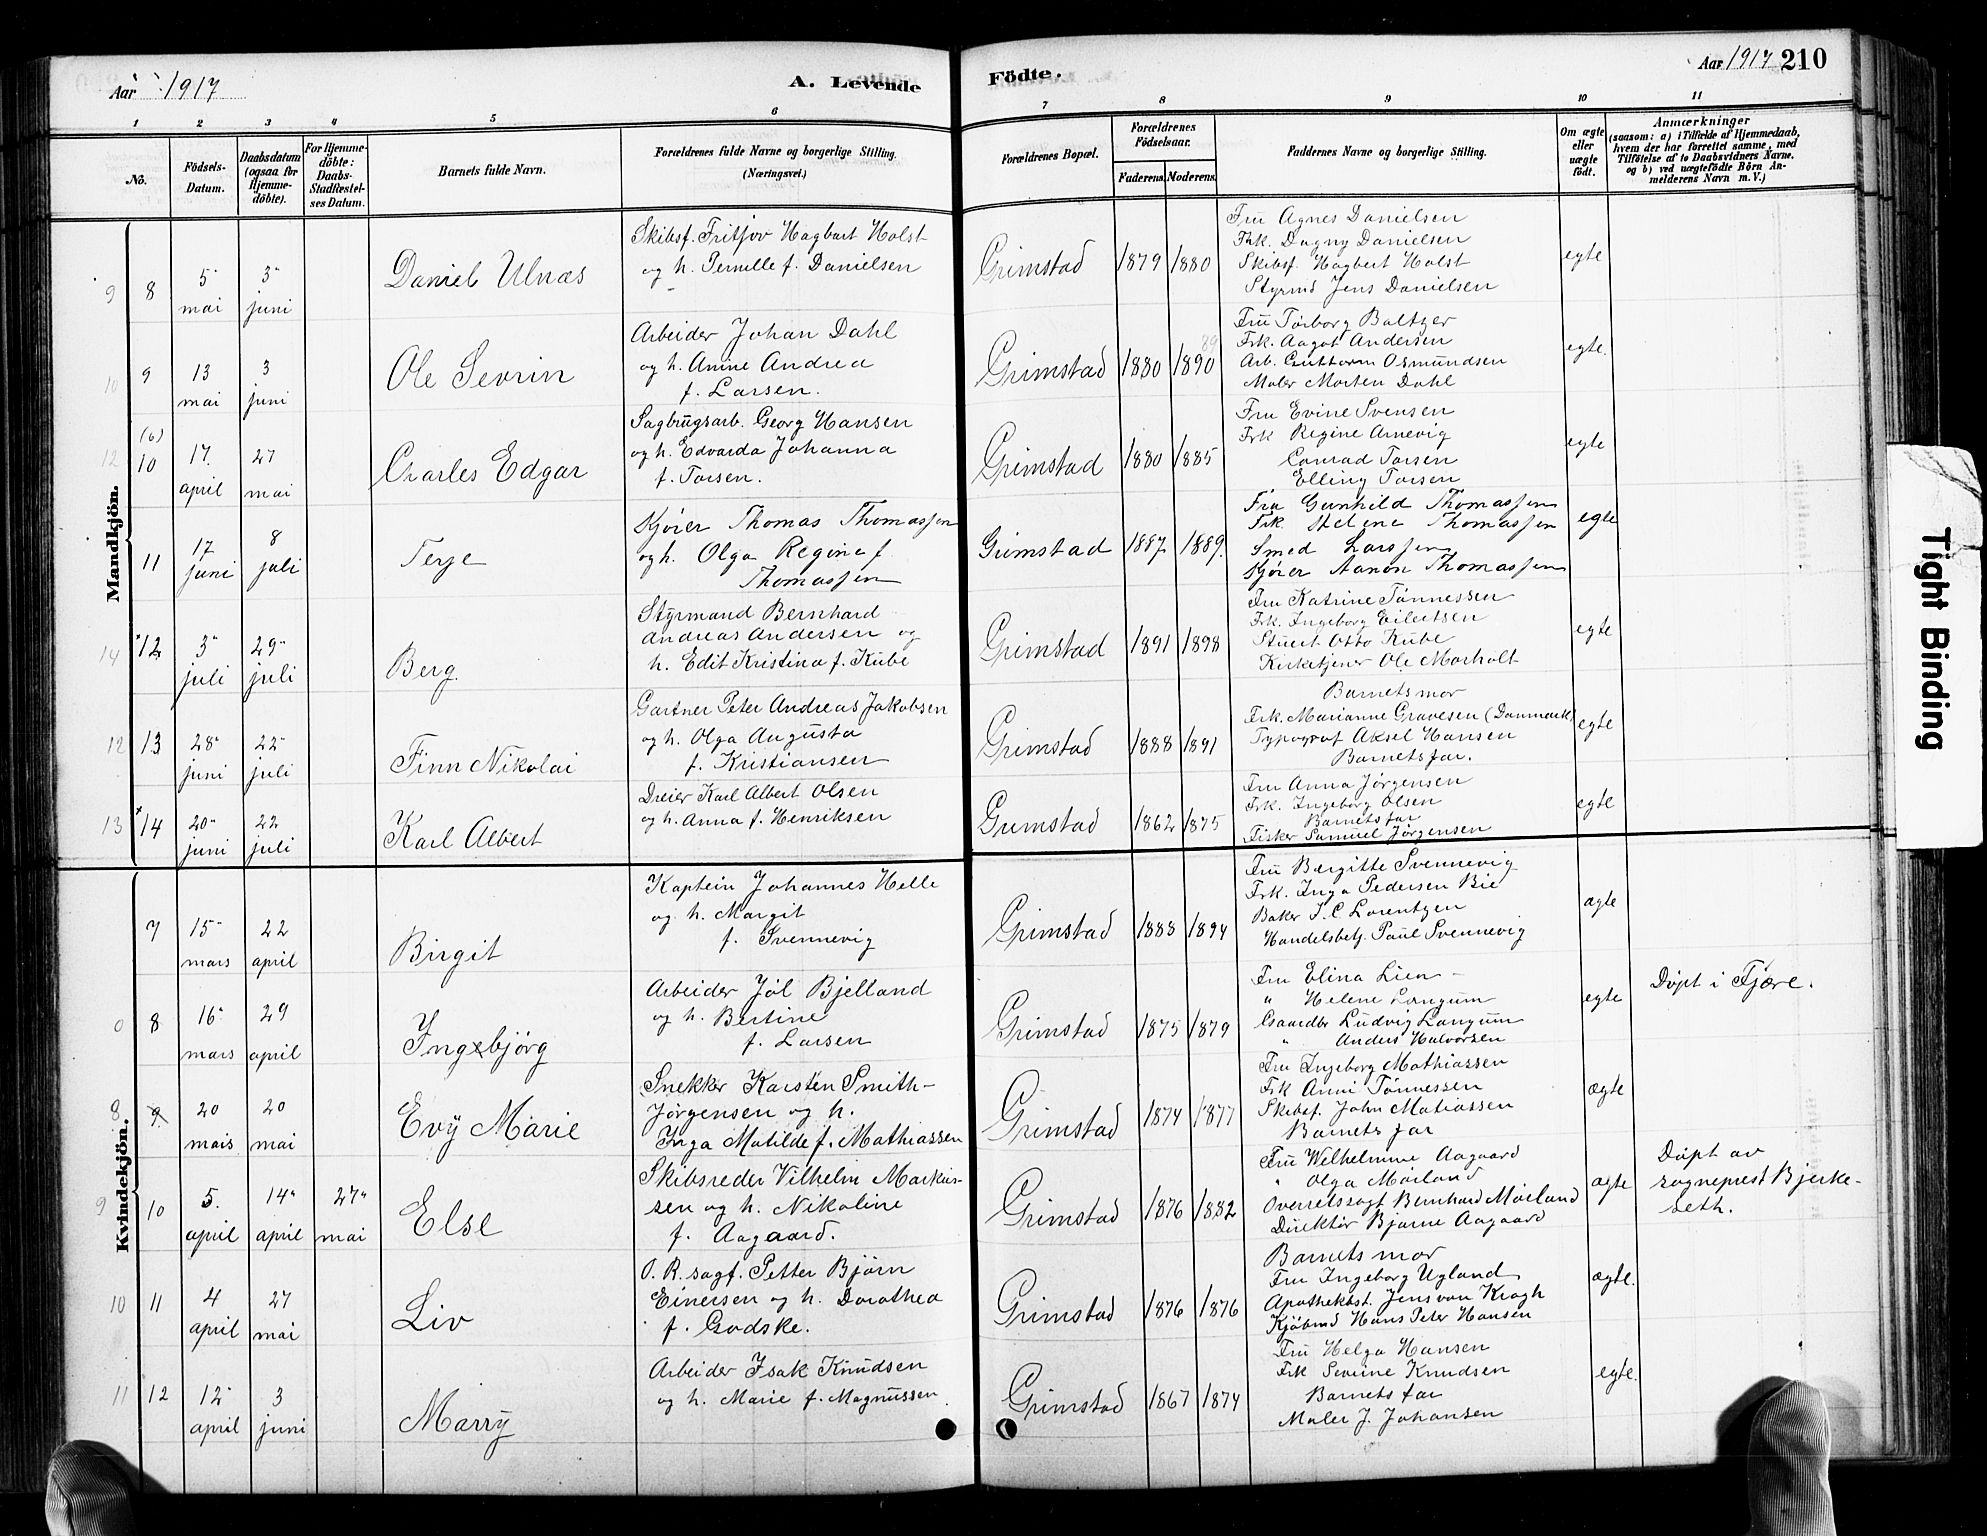 Aar 1917
A. Levende
Födte.
Aar 1917 210
1 2 3 4 5 6 7 8 9 10 11
No.
Födsels-
Datum.
Daabsdatum
(ogsaa for
Hjemme-
döbte).
For Hjemme-
döbte:
Daabs-
Stadfæstel-
ses Datum.
Barnets fulde Navn.
Forældrenes fulde Navne og borgerlige Stilling.
(Næringsvei.)
Forældrenes Bopæl.
Forældrenes
Födselsaar.
Faderens. Moderens.
Faddernes Navne og borgerlige Stilling.
Om ægte
eller
uægte
födt.
Anmærkninger
(saasom: a) i Tilfælde af Hjemmedaab,
hvem der har forrettet samme, med
Tilföielse af to Daabsvidners Navne.
og b) ved uægtefödte Börn An-
melderens Navn m. V.)
Mandkjön.
9 8
5 mai
3 juni
Daniel Ulnæs
Skibsf. Fritjov Hagbart Holst
og h. Pernille f. Danielsen
Grimstad 1879 1880
Fru Agnes Danielsen
Frk. Dagny Danielsen
Skibsf. Hagbert Holst
Styrmd Jens Danielsen
egte
10 9
13 mai
3 juni
Ole Sevrin
Arbeider Johan Dahl
og h. Anine Andrea
f. Larsen.
Grimstad 1880 1890
89
Fru Torborg Baltzer
Frk. Aagot Andersen
Arb. Guttorm Osmundsen
Maler Morten Dahl
egte.
(6)
12 10
17. april
27 mai
Charles Edgar
Sagbrugsarb. Georg Hansen
og h. Edvarda Johanna
f. Torsen.
Grimstad 1880 1885
Fru Evine Svensen
Frk Regine Arnevig
Conrad Torsen
Elling Torsen
egte
11
17 juni
8 juli
Terje
Kjører Thomas Thomassen
og h. Olga Regine f.
Thomassen
Grimstad 1887 1889.
Fru Gunhild Thomassen
Frk. Helene Thomassen
Smed Larssen
Kjører Aanon Thomassen
egte
14 12
3 juli
29 juli
Berg.
Styrmand Bernhard
Andreas Andersen og
h. Edit Kristina f. Kube
Grimstad 1891 1898
Fru Katrine Tønnessen
Frk. Ingeborg Eilertsen
Stuert Otto Kube
Kirketjener Ole Morholt
egte
12 13
28 juni
22 juli
Finn Nikolai
Gartner Peter Andreas Jakobsen
og h. Olga Augusta
f. Kristiansen
Grimstad 1888 1891
Barnets mor
Frk. Marianne Gravesen (Danmark)
Typograf Aksel Hansen
Barnets far.
egte
13 14
20 juni
22 juli
Karl Albert
Dreier Karl Albert Olsen
og h. Anna f. Henriksen
Grimstad 1862 1875
Fru Anna Jørgensen
Frk. Ingeborg Olsen
Barnets far
Fisker Samuel Jørgensen
egte
Kvindekjön.
7
15 mars
22 april
Birgit
Kaptein Johannes Helle
og h. Margit
f. Svennevig
Grimstad 1883 1894
Fru Bergitte Svennevig
Frk. Inga Pedersen Bie
Baker J. C. Lorentzen
Handelsbetj. Paul Svennevig
ægte
0 8
16 mars
29 april
Ingebjørg
Arbeider Jøl Bjelland
og h. Bertine
f. Larsen
Grimstad 1875 1879
Fru Elina Lien
" Helene Langum
Gaardbr Ludvig Langum
" Anders Halvorsen
egte
Døpt i Fjære.
8 9
20 mars
20 mai
Evy Marie
Snekker Karsten Smith-
Jørgensen og h.
Inga Matilde f. Mathiassen
Grimstad 1874 1877
Fru Ingeborg Mathiassen
Frk Anni Tønnessen
Skibsf. John Matiassen
Barnets far
ægte
9 10
5. april
14 april
27 mai
Else
Skibsreder Vilhelm Markus-
sen og h. Nikoline
f. Aagaard.
Grimstad 1876 1882
Fru Welhelmine Aagaard
" Olga Mørland
Overretssagf Bernhard Mørland
Direktør Bjarne Aagaard
ægte
Døpt av
sogneprest Bjerke-
seth.
10 11
4 april
27 mai
Liv
O. R. sagf. Petter Bjørn
Einersen og h. Dorothea
f. Godske.
Grimstad 1876 1876
Barnets mor
Fru Ingeborg Ugland
Apothekbst. Jens von Krogh
Kjøbmd Hans Peter Hansen
ægte.
11 12
12 april
3 juni
Marry
Arbeider Isak Knudsen
og h. Marie f. Magnussen
Grimstad 1867 1874
Fru Helga Hansen
Frk Severine Knudsen
Barnets far
Maler J. Johansen
egte.
Tight Binding